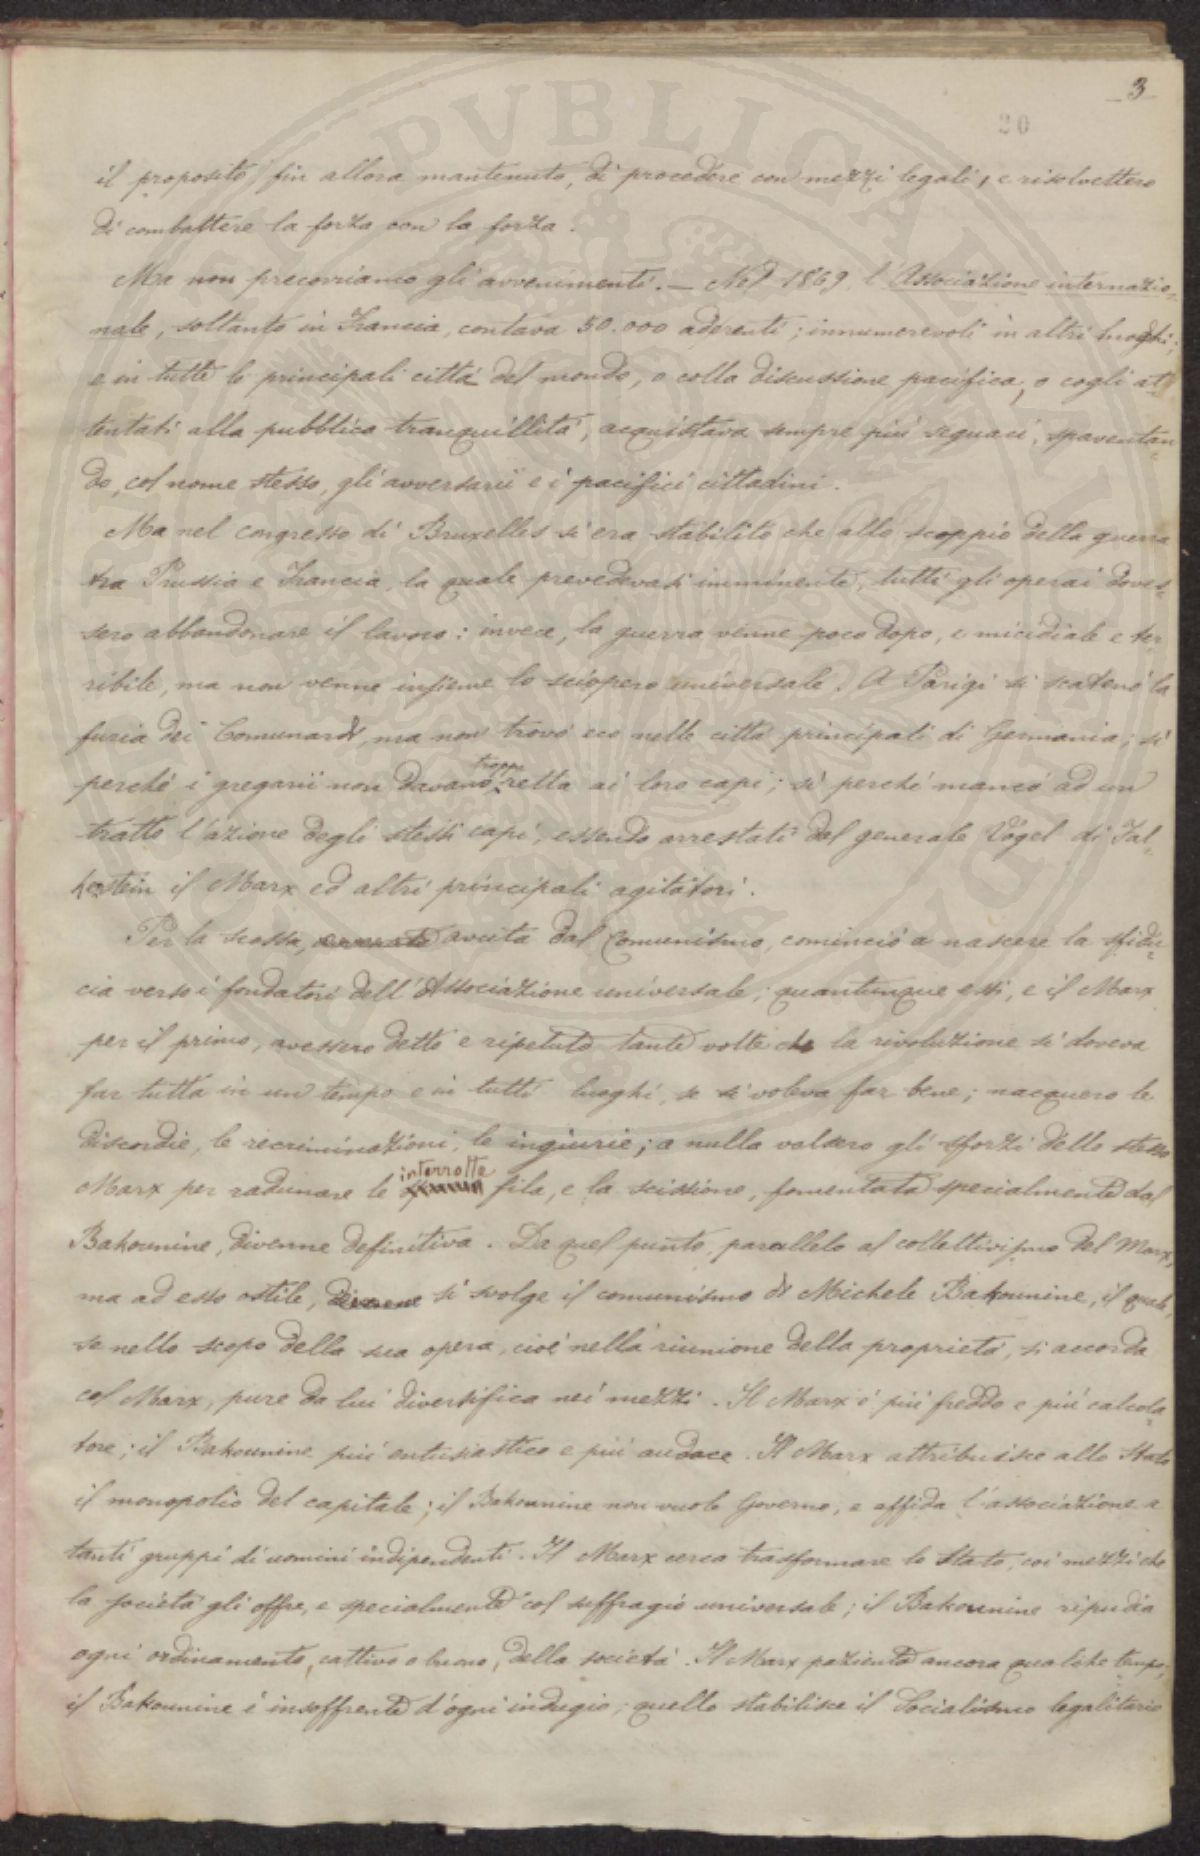 3
20
il proposito, fin allora mantenuto, di procedere con mezzi legali, e risolvettero
di combattere la forza con la forza.
Ma non precorriamo gli avvenimenti. — Nel 1869, l'Associazione internazio-
nale, soltanto in Francia, contava 50.000 aderenti; innumerevoli in altri luoghi;
e in tutte le principali città del mondo, o colla discussione pacifica, o cogli at-
tentati alla pubblica tranquillità, acquistava sempre più seguaci, spaventan-
do, col nome stesso, gli avversarii e i pacifici cittadini.
Ma nel congresso di Bruxelles si era stabilito che allo scoppio della guerra
tra Prussia e Francia, la quale prevedevasi imminente, tutti gli operai doves-
sero abbandonare il lavoro: invece, la guerra venne poco dopo, e micidiale e ter-
ribile, ma non venne insieme lo sciopero universale. A Parigi si scatenò la
furia dei Comunardi, ma non trovò eco nelle città principali di Germania; sì
perché i gregarii non davano troppo retta ai loro capi; sì perché mancò ad un
tratto l'azione degli stessi capi, essendo arrestati dal generale Vögel di Fal-
kestein il Marx ed altri principali agitatori.
Per la scossa, avuta dal Comunismo, cominciò a nascere la sfidu-
cia verso i fondatori dell'Associazione universale; quantunque essi, e il Marx
per il primo, avessero detto e ripetuto tante volte che la rivoluzione si doveva
far tutta in un tempo e in tutti luoghi, se si voleva far bene; nacquero le
discordie, le recriminazioni, le ingiurie; a nulla valsero gli sforzi dello stesso
Marx per radunare le interrotte fila, e la scissione, fomentata specialmente dal
Bakounine, divenne definitiva. Da quel punto, parallelo al collettivismo del Marx,
ma ad esso ostile, si svolge il comunismo di Michele Bakounine, il quale,
se nello scopo della sua opera, cioè nella riunione della proprietà, si accorda
col Marx, pure da lui diversifica nei mezzi. Il Marx è più freddo e più calcola-
tore; il Bakounine più entusiastico e più audace. Il Marx attribuisce allo Stato
il monopolio del capitale; il Bakounine non vuole Governo, e affida l'associazione a
tanti gruppi di uomini indipendenti. Il Marx cerca trasformare lo Stato, coi mezzi che
la società gli offre, e specialmente col suffragio universale; il Bakounine ripudia
ogni ordinamento, cattivo o buono, della società. Il Marx pazienta ancora qualche tempo;
il Bakounine è insoffrente d'ogni indugio; quello stabilisce il Socialismo legalitario